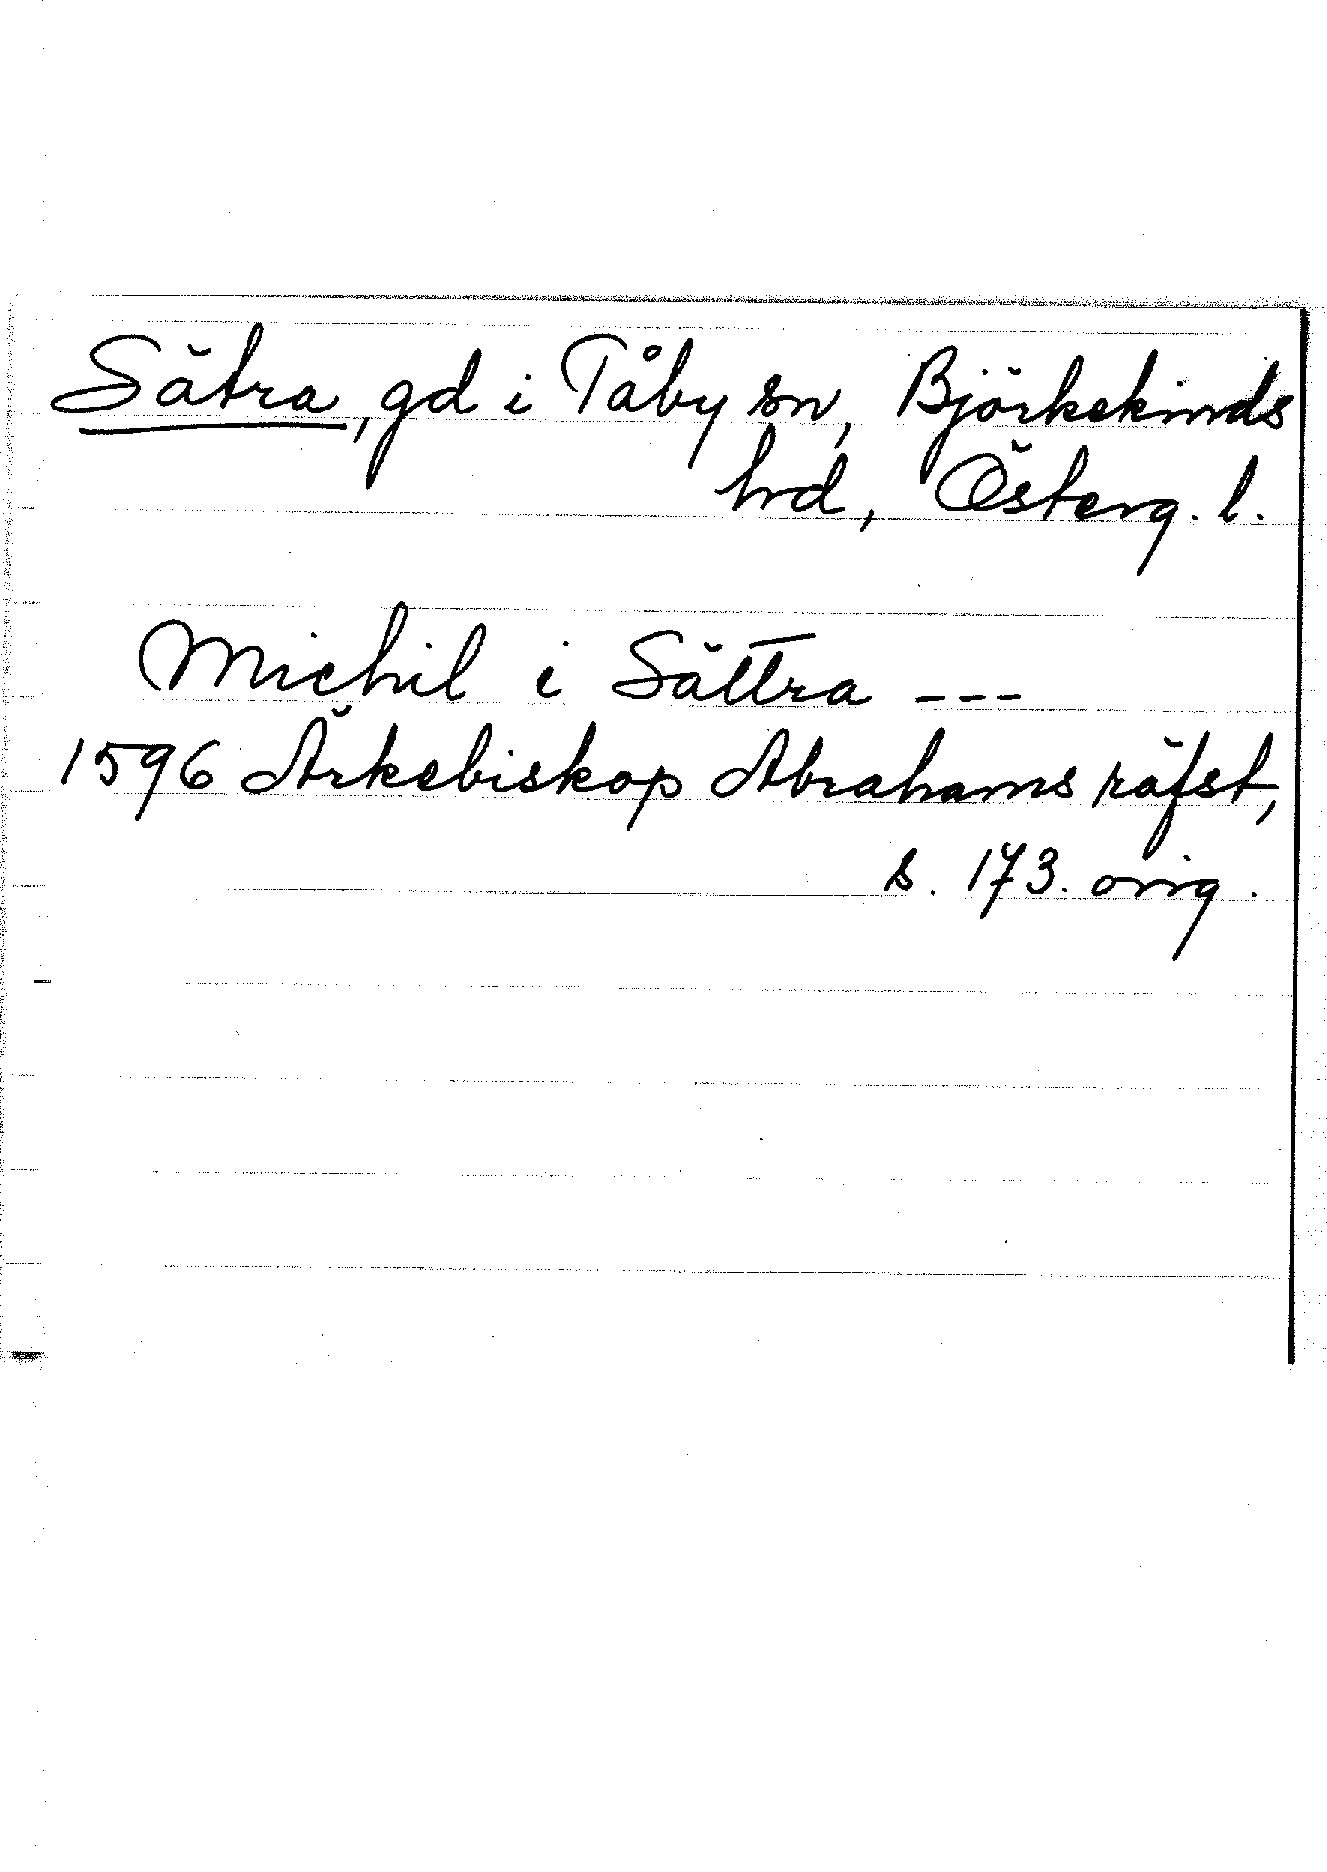 Sätra, gd i Tåby sn, Björkekinds
hd, Österg. l.
Michil i Sättra ---
1596 Ärkebiskop Abrahams räfst,
s. 173. orig.